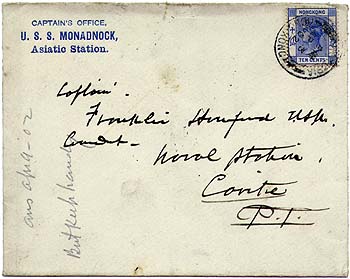 CAPTAIN'S OFFICE,
U. S. S. MONADNOCK,
Asiatic Station.
HONGKONG
TEN CENTS
Captain
Franklin Hanford U.S.N.
Comdt.
Naval Station,
Cavite
P.I.
ans apl 9-02
But keep handy